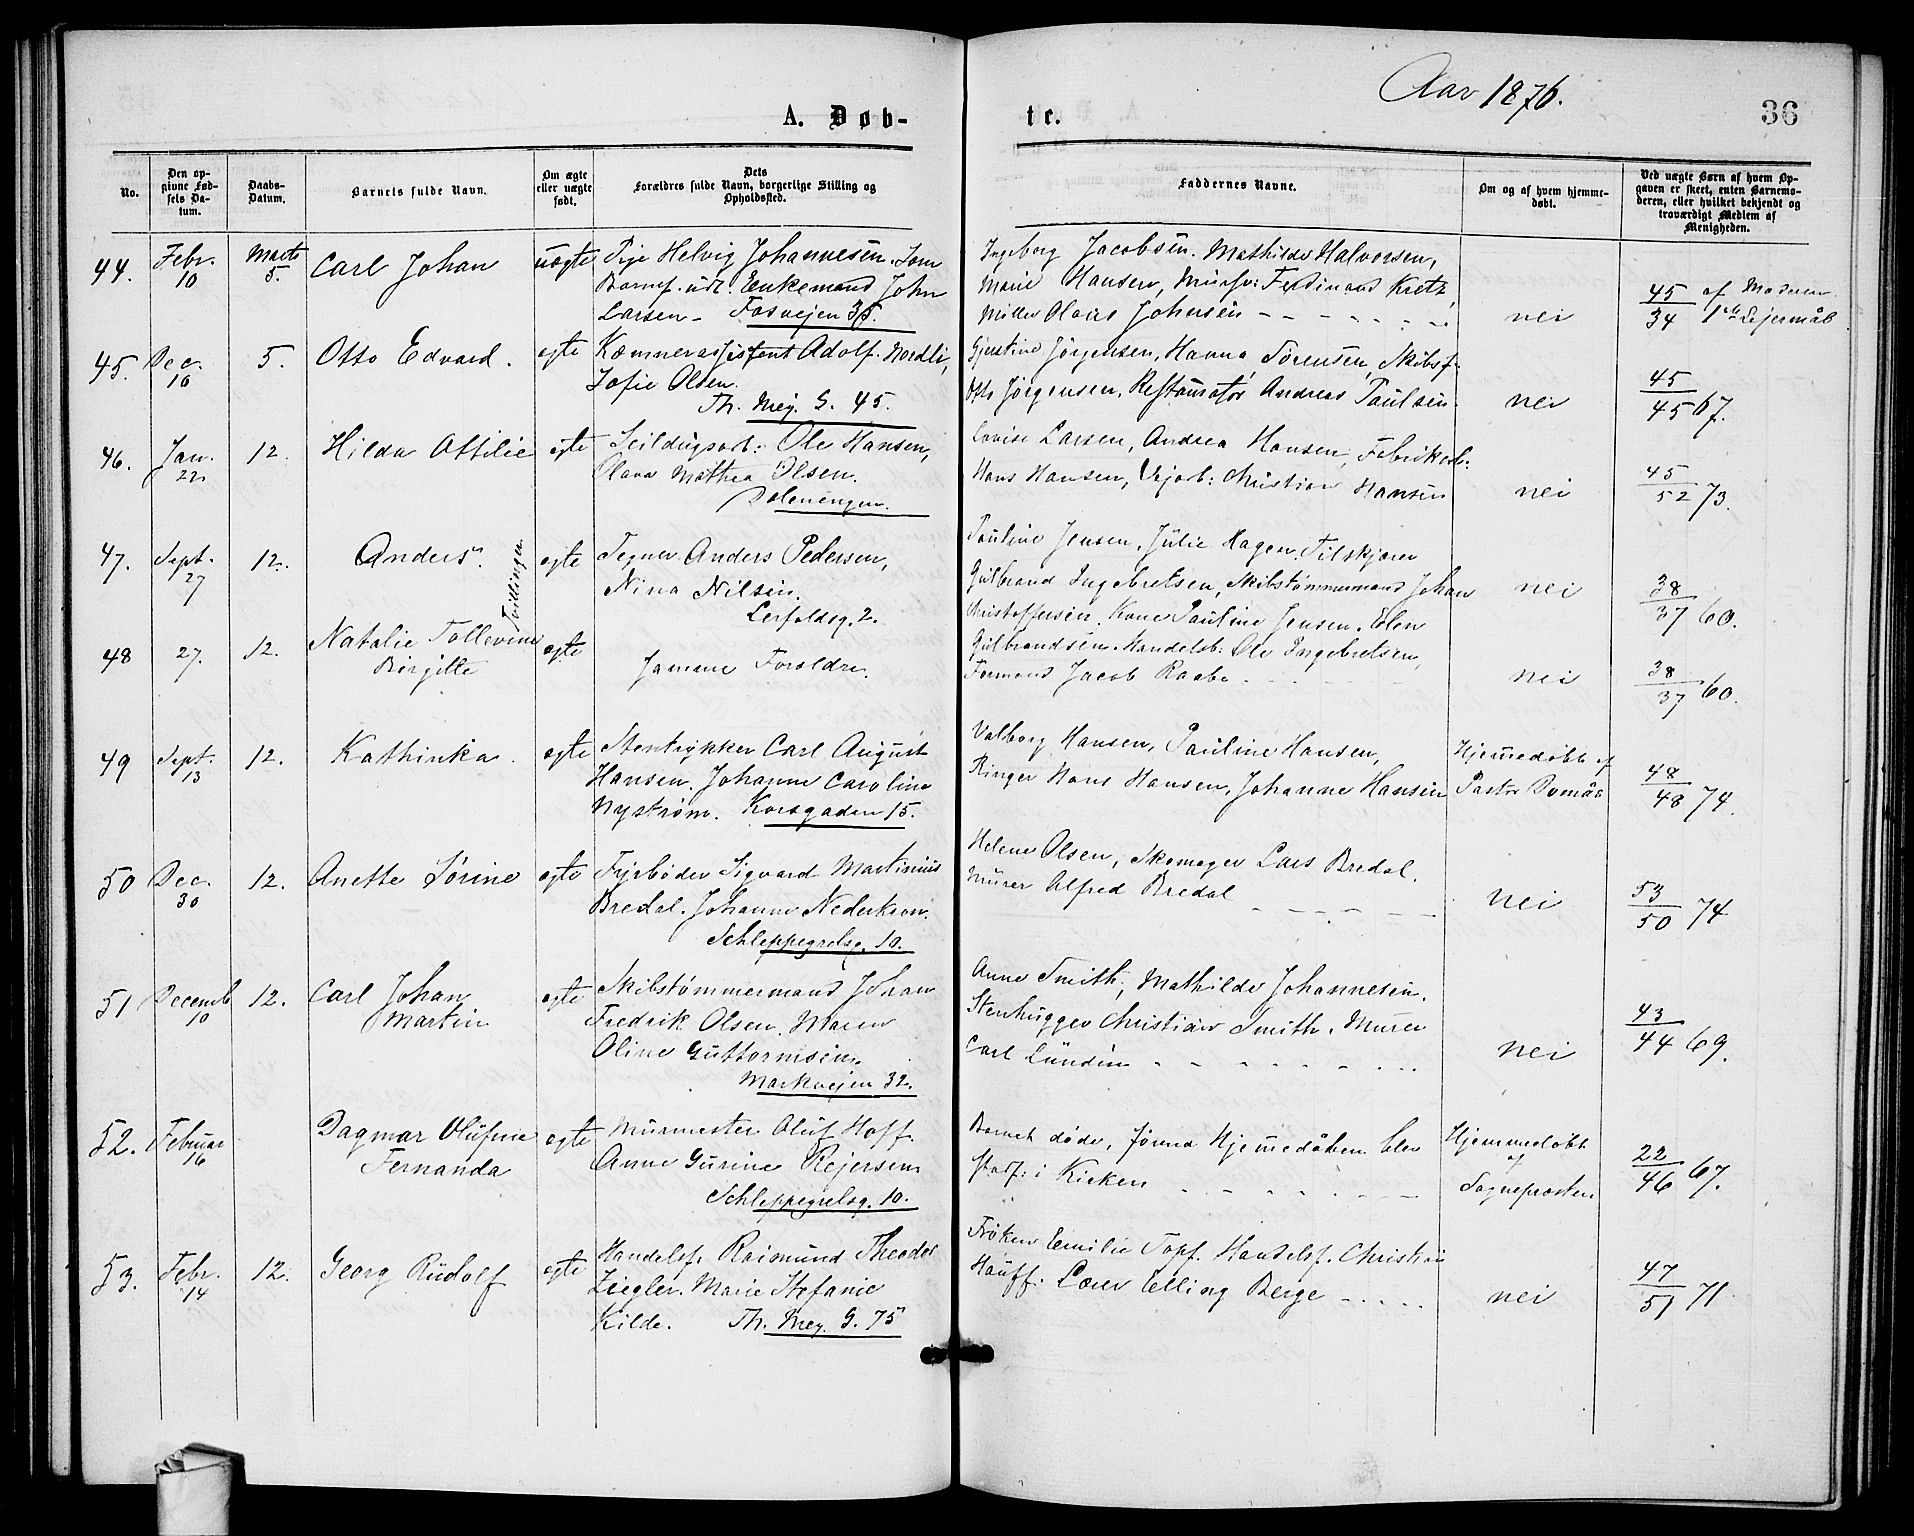 Aar 1876.
36
A. Døb-
te.
No.
Den op-
givne Fød-
sels Da-
tum.
Daabs-
Datum.
Barnets fulde Navn.
Om ægte
eller uægte
født.
Dets
Forældres fulde Navn, borgerlige Stilling og
Opholdssted.
Faddernes Navne.
Om og af hvem hjemme-
døbt.
Ved uægte Børn af hvem Op-
gaven er skeet, enten Barnemo-
deren, eller hvilket bekjendt og
troværdigt Medlem af
Menigheden.
44. Febr. 10 Marts 5. Carl Johan uægte
Helvig Johannesen. Som
Barnef. udl. Enkemand John
Larsen - Fosvejen 35.
Ingeborg Jacobsen. Mathilde Halvorsen,
Marie Hansen, Mursv: Ferdinand Kretz,
Møller Olaus Johnsen
nei
45/34 af Moderen. 1ste Lejermål
45. Dec. 16 5. Otto Edvard. ægte
Kæmnerassistent Adolf Nordli,
Sofie Olsen.
Th. Mey. G. 45.
Gjestine Jørgensen, Hanna Sørensen, Skibsf.
Otto Jørgensen, Restauratør Andreas Paulsen
nei
45/45 67.
46. Jan. 22 12. Hilda Ottilie ægte
Seildugsarb: Ole Hansen,
Olava Mathea Olsen.
Dælenengen.
Lovise Larsen, Andrea Hansen, Fabrikarb:
Hans Hansen, Vejarb: Christian Hansen
nei
45/52 73.
47. Sept. 27 12. Anders. Tvillinger ægte
Tegner Anders Pedersen,
Nina Nilsen.
Lerfaldsg. 2.
Pauline Jensen, Julie Hagen. Filskjærer
Gulbrand Ingebretsen, Skibstømmermand Johan
nei
38/37 60.
48 27. 12. Natalie Tollevine
Birgitte
ægte
Samme Forældre.
Christoffersen. Kone Pauline Jensen. Elen
Gulbrandsen. Handelsb: Ole Ingebretsen,
Formand Jacob Raabe
nei
38/37 60.
49 Sept. 13 12. Kathinka. ægte
Stentrykker Carl August
Hansen. Johanne Caroline
Nystrøm. Korsgaden 15.
Valborg Hansen, Pauline Hansen,
Ringer Hans Hansen, Johanne Hansen
Hjemedøbt af
Pastor Domås
48/48 74.
50 Dec. 30 12. Anette Sørine ægte
Fyrbøder Sigvard Martinius
Bredal. Johanne Nederkson.
Schleppegrelsg. 10.
Helene Olsen, Skomager Lars Bredal.
Murer Alfred Bredal
nei
53/50 74
51 Decemb 10 12. Carl Johan
Martin
ægte
Skibstømmermand Johan
Fredrik Olsen. Maren
Oline Guttormsen.
Markvejen 32.
Anne Smith, Mathilde Johannesen.
Stenhugger Christian Smith. Murer
Carl Lundin
nei
43/44 69.
52. Februar 16 Dagmar Olufine
Fernanda
ægte
Murmester Oluf Hoff.
Anne Gurine Rejersen
Schleppegrelsg. 10.
Barnet døde, førend Hjemedåben blev
stadf: i Kirken
Hjemmedøbt
af
Sognepresten.
22/46 67.
53. Febr. 14 12. Georg Rudolf ægte
Handelsf. Raimund Theodor
Ziegler. Marie Stefanie
Kilde. Th. Mey. G. 75
Frøken Emilie Topf. Handelsf. Christian
Hauff. Lærer Elling Berge
nei
47/51 71.